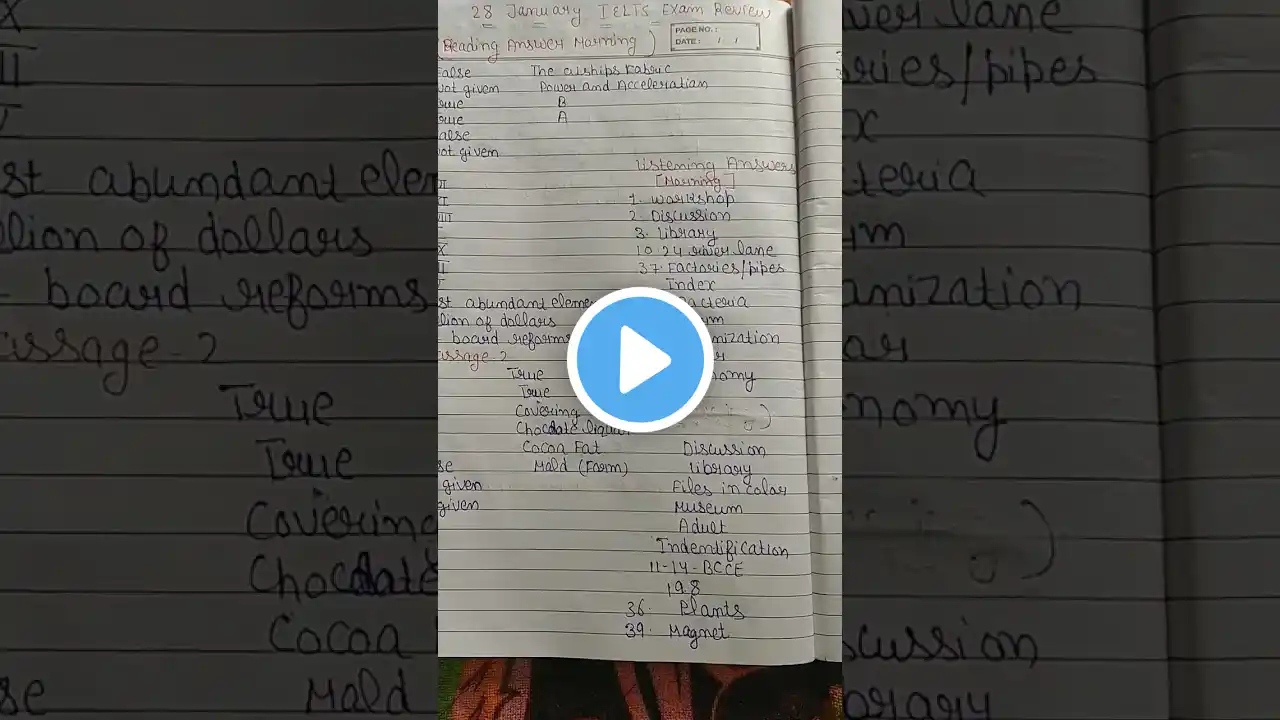 28 January IELTS Exam Review
(Reading Answer Morning)
PAGE NO. :
DATE : / /
alse The aiships Fabric
not given Power and Acceleration
rue B
rue A
alse
not given
Listening Answers
[Morning]
1. workshop
2. Discussion
3. library
10. 24 river lane
37. Factories/pipes
Index
st abundant eleme acteria
lion of dollars um
board reforms nization
assage-2 r
True nomy
True
Covering
Chocolate liquor
Cocoa Fat Discussion
se Mald (Farm) library
given Files in color
given Museum
Adult
Indentification
11-14-BCCE
198
36. Plants
39. Magnet